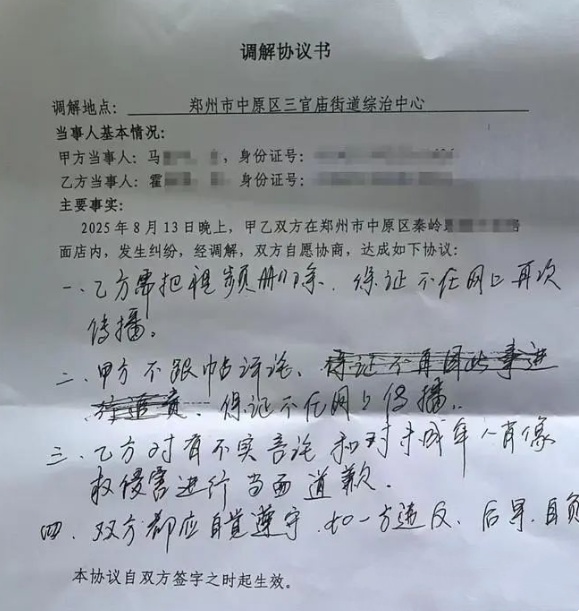 调解协议书
调解地点： 郑州市中原区三官庙街道综治中心
当事人基本情况：
甲方当事人：马 ，身份证号：
乙方当事人：霍 ，身份证号：
主要事实：
2025年8月13日晚上，甲乙双方在郑州市中原区秦岭
面店内，发生纠纷，经调解，双方自愿协商，达成如下协议：
一、乙方需把视频删除、保证不在网上再次
传播。
二、甲方不跟帖评论、保证不再因此事进
行追责、保证不在网上传播。
三、乙方对有不实言论和对未成年人肖像
权侵害进行当面道歉.
四、双方都应自觉遵守.如一方违反、后果自负
本协议自双方签字之时起生效。